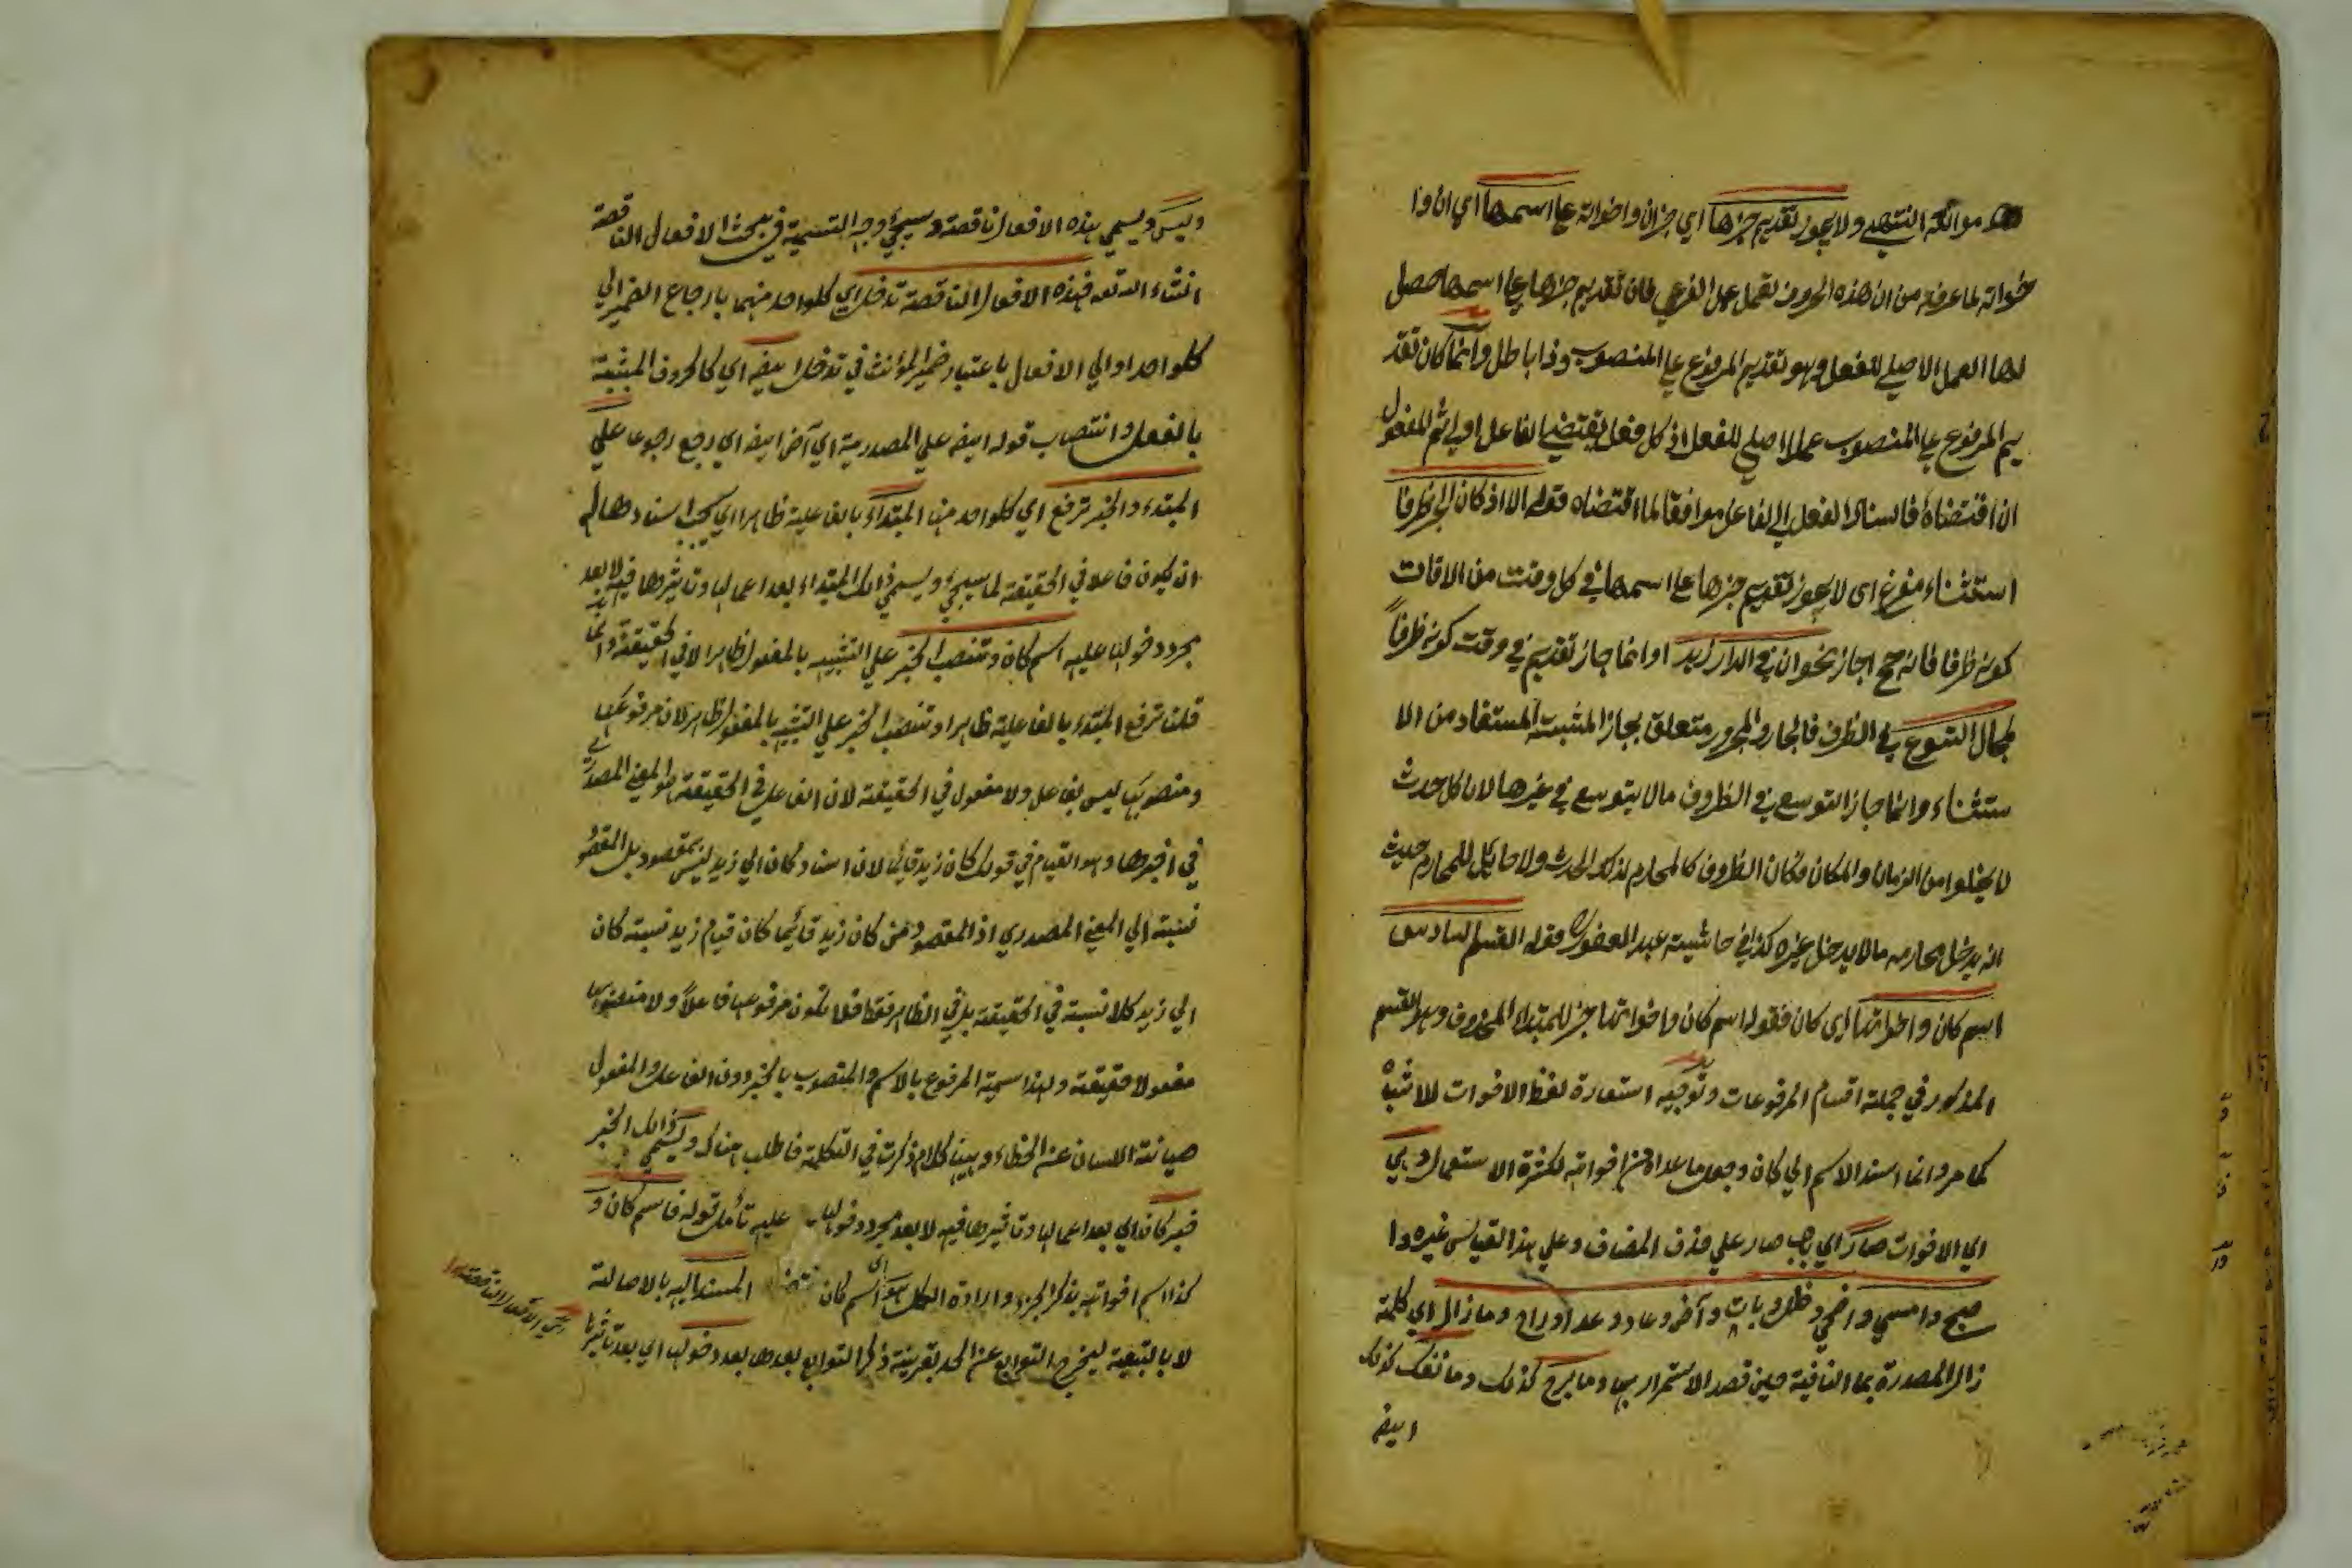 موانعه انتهى ولا يجوز تقديم خبرها اي خبران واخواته على اسمها اي ان وا
خواته لما عرفت من ان هذه الحروف تعمل عمل الفرعي فان تقديم خبرها على اسمها حصل
لها العمل الاصلي للفعل وهو تقديم المرفوع على المنصوب وذا باطل وانما كان تقد
يم المرفوع على المنصوب عملا اصلي للفعل اذ كل فعل يقتضي الفاعل اولا ثم المفعول
ان اقتضاه فاسناد الفعل الى الفاعل موافقا لما اقتضاه قوله الا اذ كان الخبر ظرفا
استثناء مفرغ اى لا يجوز تقديم خبرها على اسمها في كل وقت من الاوقات
كونه ظرفا فانه ح جاز نحو ان في الدار زيد او انما جاز تقديم في وقت كونه ظرفاً
لمجال التوسع في الظرف فالجار والمجرور متعلق بجاز المثبت المستفاد من الا
ستثناء وانما جاز التوسع في الظروف مالا يتوسع في غيرها لان كل حدث
لا يخلوا من الزمان والمكان فكان الظروف كالمحارم لذلك الحدث ولا حائل للمحارم حيث
انه يدخل محارمه مالا يدخل غيره كذا في حاشية عبد الغفور قوله القسم السادس
اسم كان واخواتها اى كان فقوله اسم كان واخواتها خبر للمبتداء المحذوف وهو القسم
المذكور في جملة اقسام المرفوعات وتوجيه استعارة لفظ الاخوات للاشباه
كما مر وانما اسند الاسم الي كان وجعل ما عداه من اخواته لكثرة الاستعمال وهي
اي الاخوات صار اي باب صار علي حذف المضاف وعلي هذا القياس غيره وا
صبح وامسي واضحي وظل وبات وآض وعاد وغدا وراح وما زال اي كلمة
زال المصدرة بما النافية حين قصد الاستمرار بها وما برح كذلك وما نفك كذلك
ايضا
وليس ويسمي هذه الافعال ناقصة وسيجئ وجه التسمية في بحث الافعال الناقصة
انشاء الله تعه فهذه الافعال الناقصة تدخل اي كلواحد منهما بارجاع الضمير الي
كلواحد او الي الافعال باعتبار ضمير المؤنث في تدخل ايضا اي كالحروف المشبهة
بالفعل وانتصاب قوله ايضا علي المصدرية اي آض ايضا اي رجع رجوعا علي
المبتداء والخبر ترفع اي كلواحد منها المبتداء بالفاعلية ظاهرا اي بحسب اسنادها له
ان يكون فاعلا في الحقيقة لما سيجئ ويسمي ذالك المبتداء بعد اعمالها وتاثيرها فيه لا بعد
مجرد دخولها عليه اسم كان وتنصب الخبر علي التشبيه بالمفعول ظاهرا لا في الحقيقة وانما
قلت ترفع المبتداء بالفاعلية ظاهرا وتنصب الخبر علي التشبيه بالمفعول ظاهرا لان مرفوعها
ومنصوبها ليس بفاعل ولا مفعول في الحقيقة لان الفاعل في الحقيقة هو المعني المصدري
في اخبرها وهو القيام في قولك كان زيد قائما لان اسناد كان الي زيد ليس بمقصود بل المقصود
نسبته الي المعني المصدري اذ المقصود من كان زيد قائما كان قيام زيد نسبة كان
الي زيد كلا نسبة في الحقيقة بل في الظاهر فقط فلا يكون مرفوعها فاعلاً ولا منصوبها
مفعولا حقيقة ولهذا سمية المرفوع بالاسم والمنصوب بالخبر دون الفاعل والمفعول
صيانة اللسان عن الخطاء وههنا كلام ذكرت في التكلمة فاطلب هناك ويسمي ذالك الخبر
خبر كان اي بعد اعمالها وتاثيرها فيه لا بعد مجرد دخولها عليه تأمل قوله فاسم كان و
كذا اسم اخواته بذكر الجزء وارادة الكل هو اي اسم كان المسند اليه بالاصالة
لا بالتبعية ليخرج التوابع عن الحد بقرينة ذكر التوابع بعدها بعد دخولها اي بعد تاثيرها
اي الافعال الناقصة